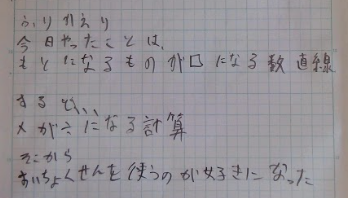 ふりかえり
今日やったことは、
もとになるものが□になる数直線
すると、、
×が÷になる計算
そこから
すいちょくせんを使うのが好きになった